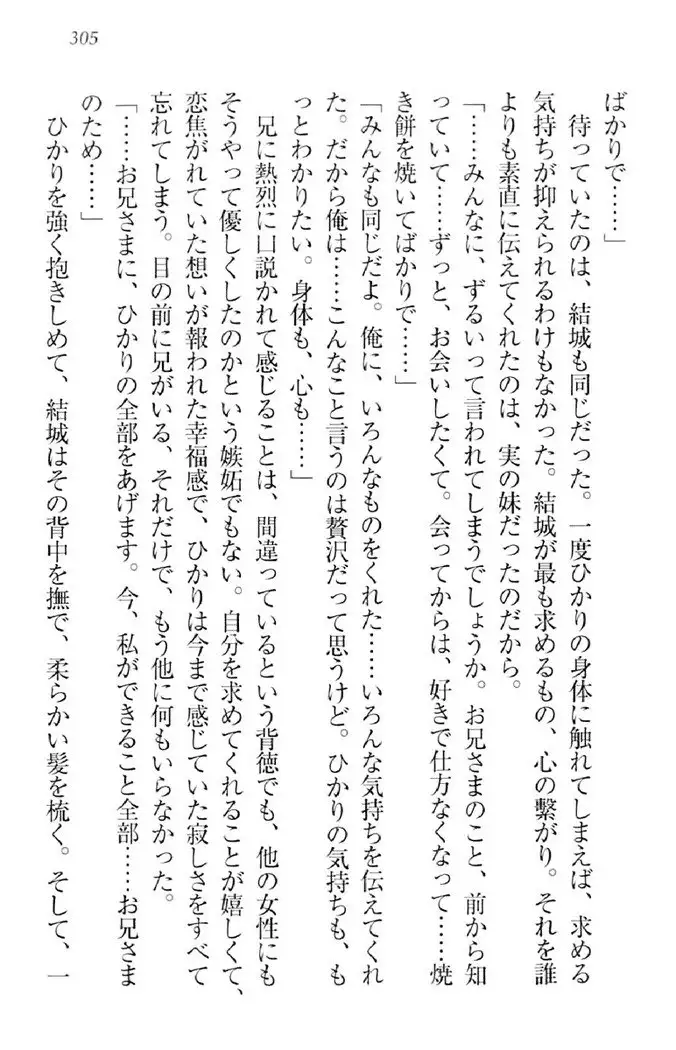 305
ばかりで……」
　待っていたのは、結城も同じだった。一度ひかりの身体に触れてしまえば、求める
気持ちが抑えられるわけもなかった。結城が最も求めるもの、心の繋がり。それを誰
よりも素直に伝えてくれたのは、実の妹だったのだから。
「……みんなに、ずるいって言われてしまうでしょうか。お兄さまのこと、前から知
っていて……ずっと、お会いしたくて。会ってからは、好きで仕方なくなって……焼
き餅を焼いてばかりで……」
「みんなも同じだよ。俺に、いろんなものをくれた……いろんな気持ちを伝えてくれ
た。だから俺は……こんなこと言うのは贅沢だって思うけど。ひかりの気持ちも、も
っとわかりたい。身体も、心も……」
　兄に熱烈に口説かれて感じることは、間違っているという背徳でも、他の女性にも
そうやって優しくしたのかという嫉妬でもない。自分を求めてくれることが嬉しくて、
恋焦がれていた想いが報われた幸福感で、ひかりは今まで感じていた寂しさをすべて
忘れてしまう。目の前に兄がいる、それだけで、もう他に何もいらなかった。
「……お兄さまに、ひかりの全部をあげます。今、私ができること全部……お兄さま
のため……」
　ひかりを強く抱きしめて、結城はその背中を撫で、柔らかい髪を梳く。そして、一